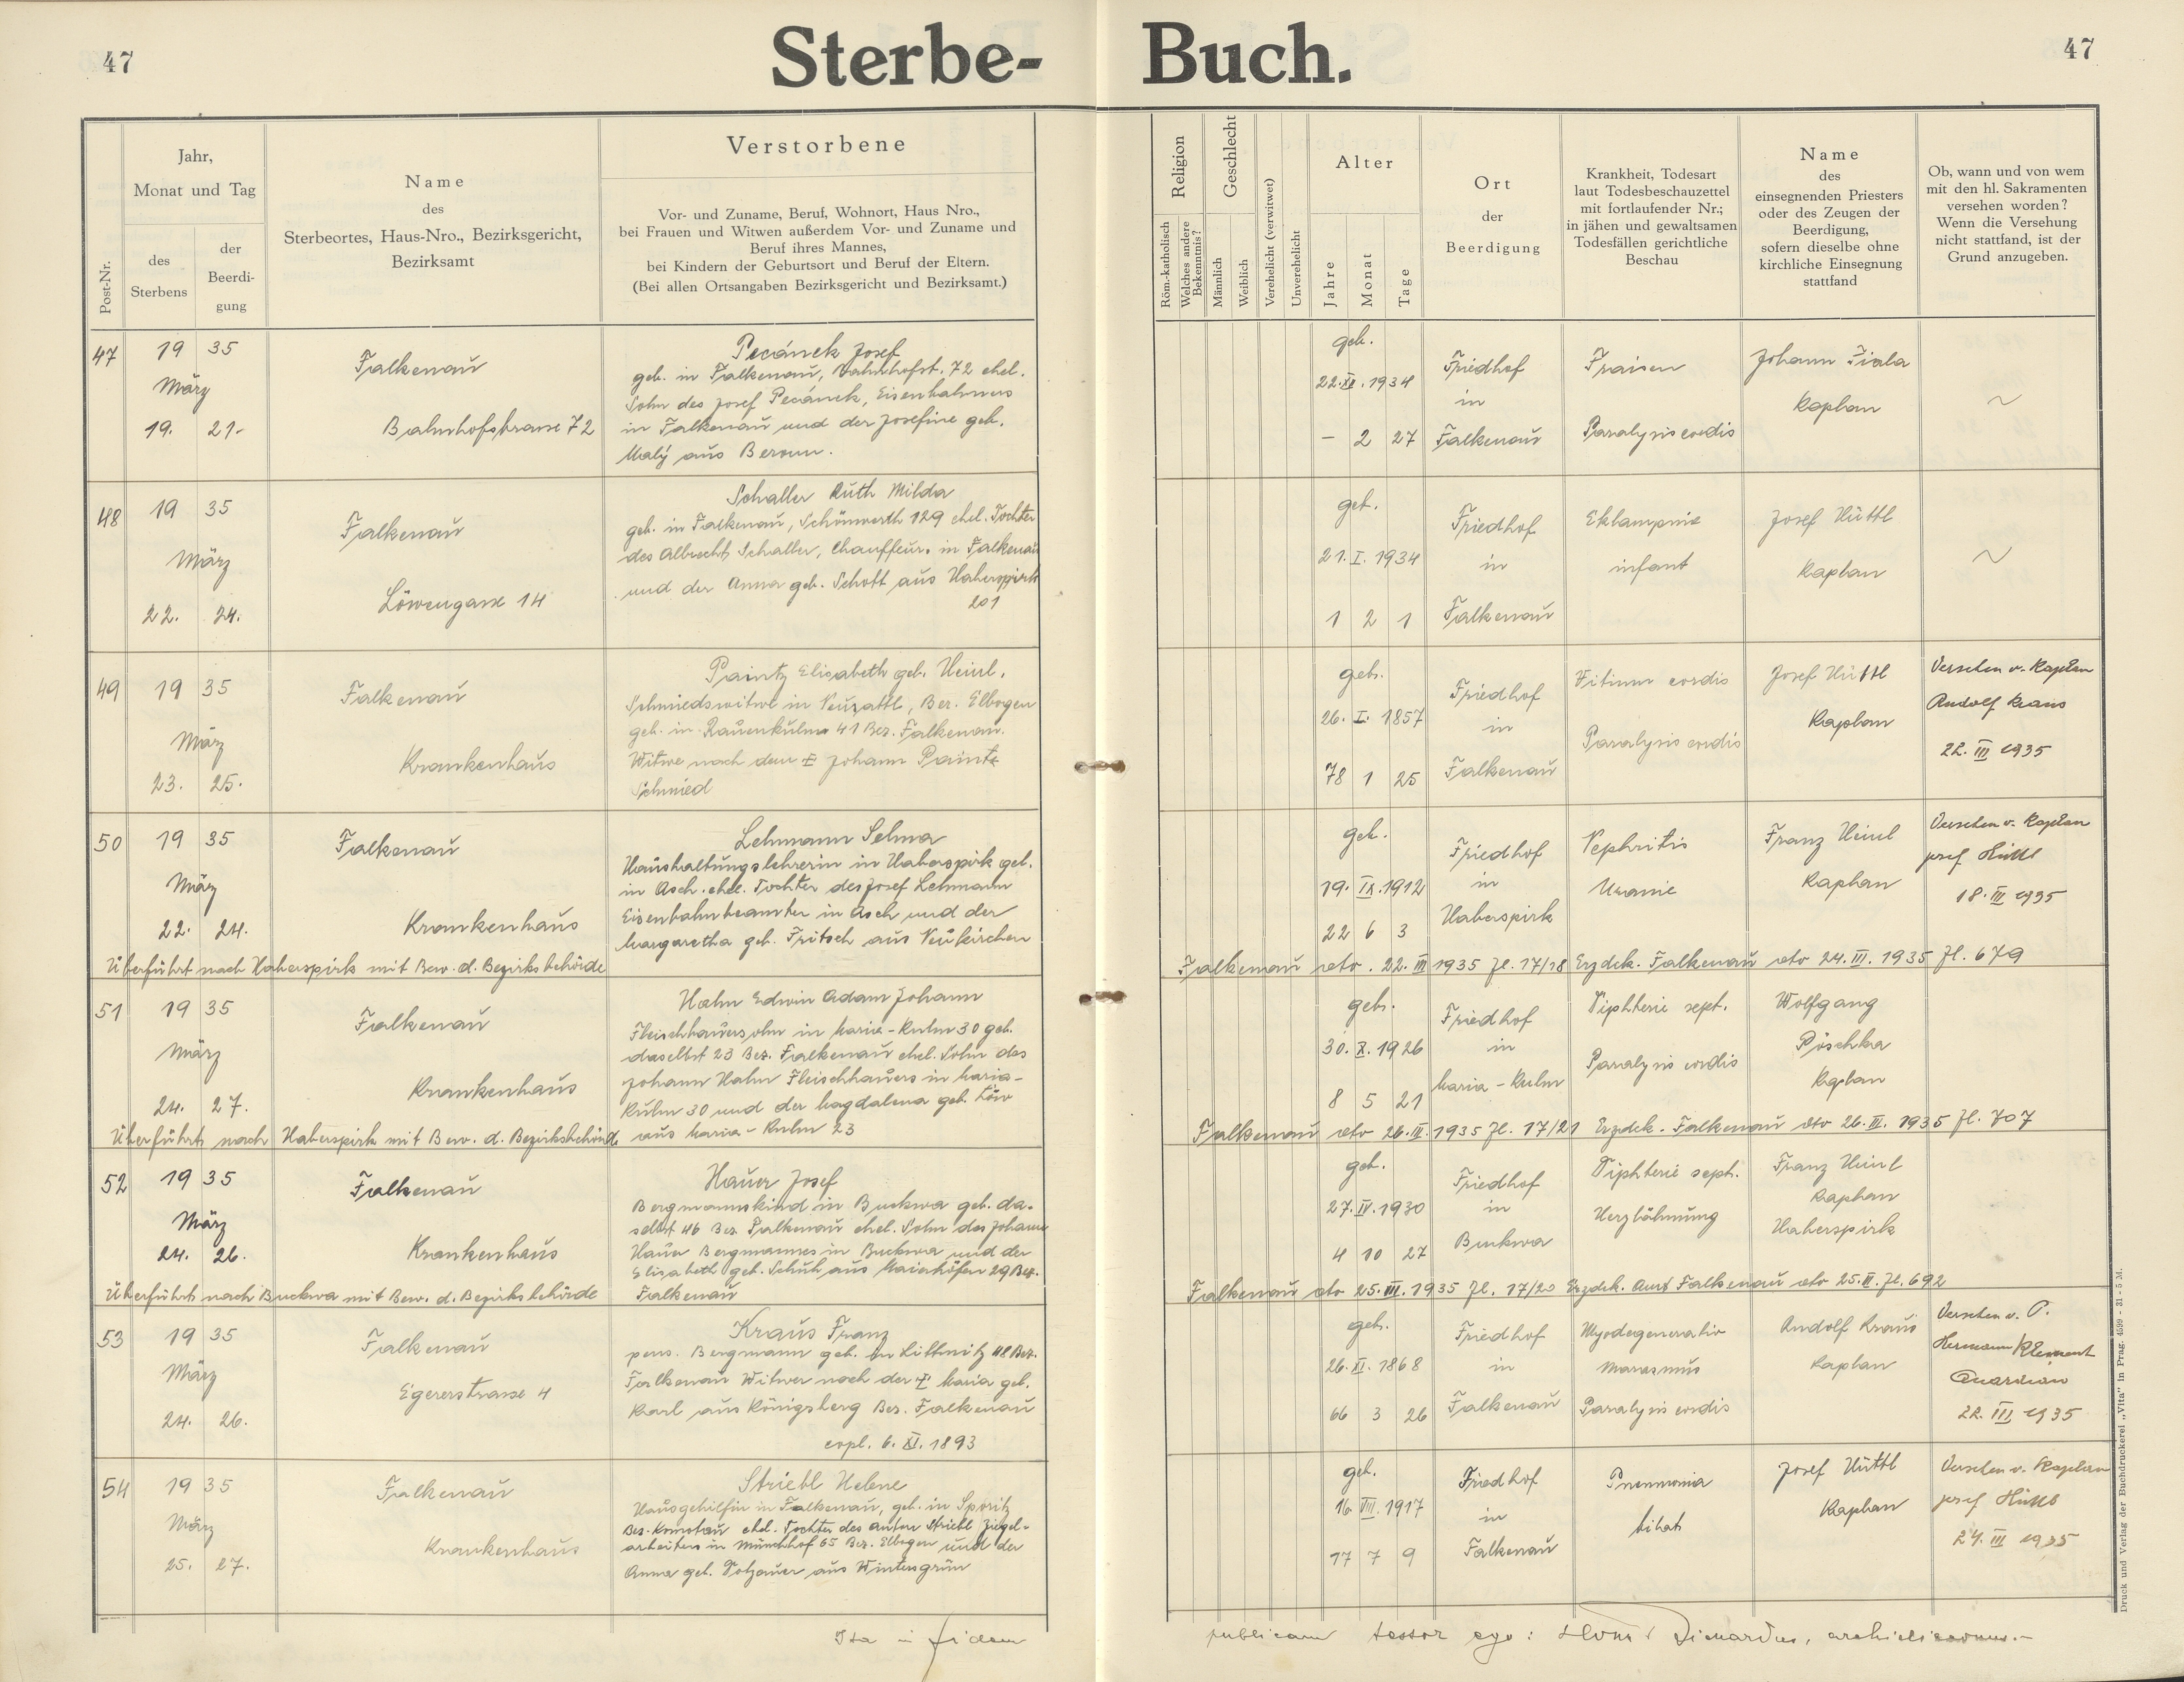 47
Sterbe-
Buch.
47
Post-Nr.
Jahr,
Monat und Tag
des
Sterbens
der
Beerdi-
gung
Name
des
Sterbeortes, Haus-Nro., Bezirksgericht,
Bezirksamt
Verstorbene
Vor- und Zuname, Beruf, Wohnort, Haus Nro.,
bei Frauen und Witwen außerdem Vor- und Zuname und
Beruf ihres Mannes,
bei Kindern der Geburtsort und Beruf der Eltern.
(Bei allen Ortsangaben Bezirksgericht und Bezirksamt.)
Religion
Röm.-katholisch
Welches andere
Bekenntnis?
Geschlecht
Männlich
Weiblich
Verehelicht (verwitwet)
Unverehelicht
Alter
Jahre
Monat
Tage
Ort
der
Beerdigung
Krankheit, Todesart
laut Todesbeschauzettel
mit fortlaufender Nr.;
in jähen und gewaltsamen
Todesfällen gerichtliche
Beschau
Name
des
einsegnenden Priesters
oder des Zeugen der
Beerdigung,
sofern dieselbe ohne
kirchliche Einsegnung
stattfand
Ob, wann und von wem
mit den hl. Sakramenten
versehen worden?
Wenn die Versehung
nicht stattfand, ist der
Grund anzugeben.
47
19 35
März
19. 21.
Falkenau
Bahnhofstrasse 72
Pecánek Josef
geb. in Falkenau, Bahnhofst. 72 ehel.
Sohn des Josef Pecánek, Eisenbahners
in Falkenau und der Josefine geb.
Malý aus Beroun.
geb.
22. XII. 1934
- 2 27
Friedhof
in
Falkenau
Fraisen
Paralysis cordis
Johann Fiala
Kaplan
~
48
19 35
März
22. 24.
Falkenau
Löwengasse 14
Schaller Ruth Milda
geb. in Falkenau, Schönwerth 129 ehel. Tochter
des Albrecht Schaller, Chauffeurs in Falkenau
und der Anna geb. Schott aus Haberspirk
201
geb.
21. I. 1934
1 2 1
Friedhof
in
Falkenau
Eklampsie
infant
Josef Hüttl
Kaplan
~
49
19 35
März
23. 25.
Falkenau
Krankenhaus
Paintz Elisabeth geb. Heinl.
Schmiedswitwe in Neusattl, Bez. Elbogen
geb. in Rauenkulm 41 Bez. Falkenau.
Witwe nach dem † Johann Paintz
Schmied
geb.
26. I. 1857
78 1 25
Friedhof
in
Falkenau
Vitium cordis
Paralysis cordis
Josef Hüttl
Kaplan
Versehen v. Kaplan
Rudolf Kraus
22. III 1935
50
19 35
März
22. 24.
Falkenau
Krankenhaus
Lehmann Selma
Haushaltungslehrerin in Haberspirk geb.
in Asch. ehel. Tochter des Josef Lehmann
Eisenbahnbeamter in Asch und der
Margaretha geb. Fritsch aus Neukirchen
geb.
19. IX. 1912
22 6 3
Friedhof
in
Haberspirk
Nephritis
Uramie
Franz Heinl
Kaplan
Versehen v. Kaplan
Josef Hüttl
18. III 1935
Überführt nach Haberspirk mit Bew. d. Bezirksbehörde
Falkenau dto. 22. III 1935 Zl. 17/18 Erzdek. Falkenau dto 24. III. 1935 Zl. 679
51
19 35
März
24. 27.
Falkenau
Krankenhaus
Hahn Edwin Adam Johann
Fleischhauerssohn in Maria-Kulm 30 geb.
daselbst 23 Bez. Falkenau ehel. Sohn des
Johann Hahn Fleischhauers in Maria-
Kulm 30 und der Magdalena geb. Löw
aus Maria-Kulm 23
geb.
30. X. 1926
8 5 21
Friedhof
in
Maria-Kulm
Diphterie sept.
Paralysis cordis
Wolfgang
Pöschka
Kaplan
Überführt nach Haberspirk mit Bew. d. Bezirksbehörde
Falkenau dto 26. III. 1935 Zl. 17/21 Erzdek. Falkenau dto 26. III. 1935 Zl. 707
52
19 35
März
24. 26.
Falkenau
Krankenhaus
Hauer Josef
Bergmannskind in Buckwa geb. da-
selbst 46 Bez. Falkenau ehel. Sohn des Johann
Hauer Bergmannes in Buckwa und der
Elisabeth geb. Schuh aus Maierhöfen 29 Bez.
Falkenau
geb.
27. IV. 1930
4 10 27
Friedhof
in
Buckwa
Diphterie sept.
Herzlähmung
Franz Heinl
Kaplan
Haberspirk
Überführt nach Buckwa mit Bew. d. Bezirksbehörde
Falkenau dto 25. III. 1935 Zl. 17/20 Erzdek. Amt Falkenau dto 25. III. Zl. 692
53
19 35
März
24. 26.
Falkenau
Egererstrasse 4
Kraus Franz
pens. Bergmann geb. in Littmitz 48 Bez.
Falkenau Witwer nach der † Maria geb.
Karl aus Königsberg Bez. Falkenau
copl. 6. XI. 1893
geb.
26. XI. 1868
66 3 26
Friedhof
in
Falkenau
Myodegeneratio
Marasmus
Paralysis cordis
Rudolf Kraus
Kaplan
Versehen v. P.
Hermann Klement
Quardian
22. III 1935
54
19 35
März
25. 27.
Falkenau
Krankenhaus
Striebl Helene
Hausgehilfin in Falkenau, geb. in Sporitz
Bez. Komotau ehel. Tochter des Anton Striebl Ziegel-
arbeiters in Münchhof 65 Bez. Elbogen und der
Anna geb. Totzauer aus Wintersgrün
geb.
16. VIII. 1917
17 7 9
Friedhof
in
Falkenau
Pneumonia
bilat
Josef Hüttl
Kaplan
Versehen v. Kaplan
Josef Hüttl
24. III 1935
Ita in fidem
publicam testor ego:
Druck und Verlag der Buchdruckerei „Vita" in Prag. 4599 - 31 - 5 M.